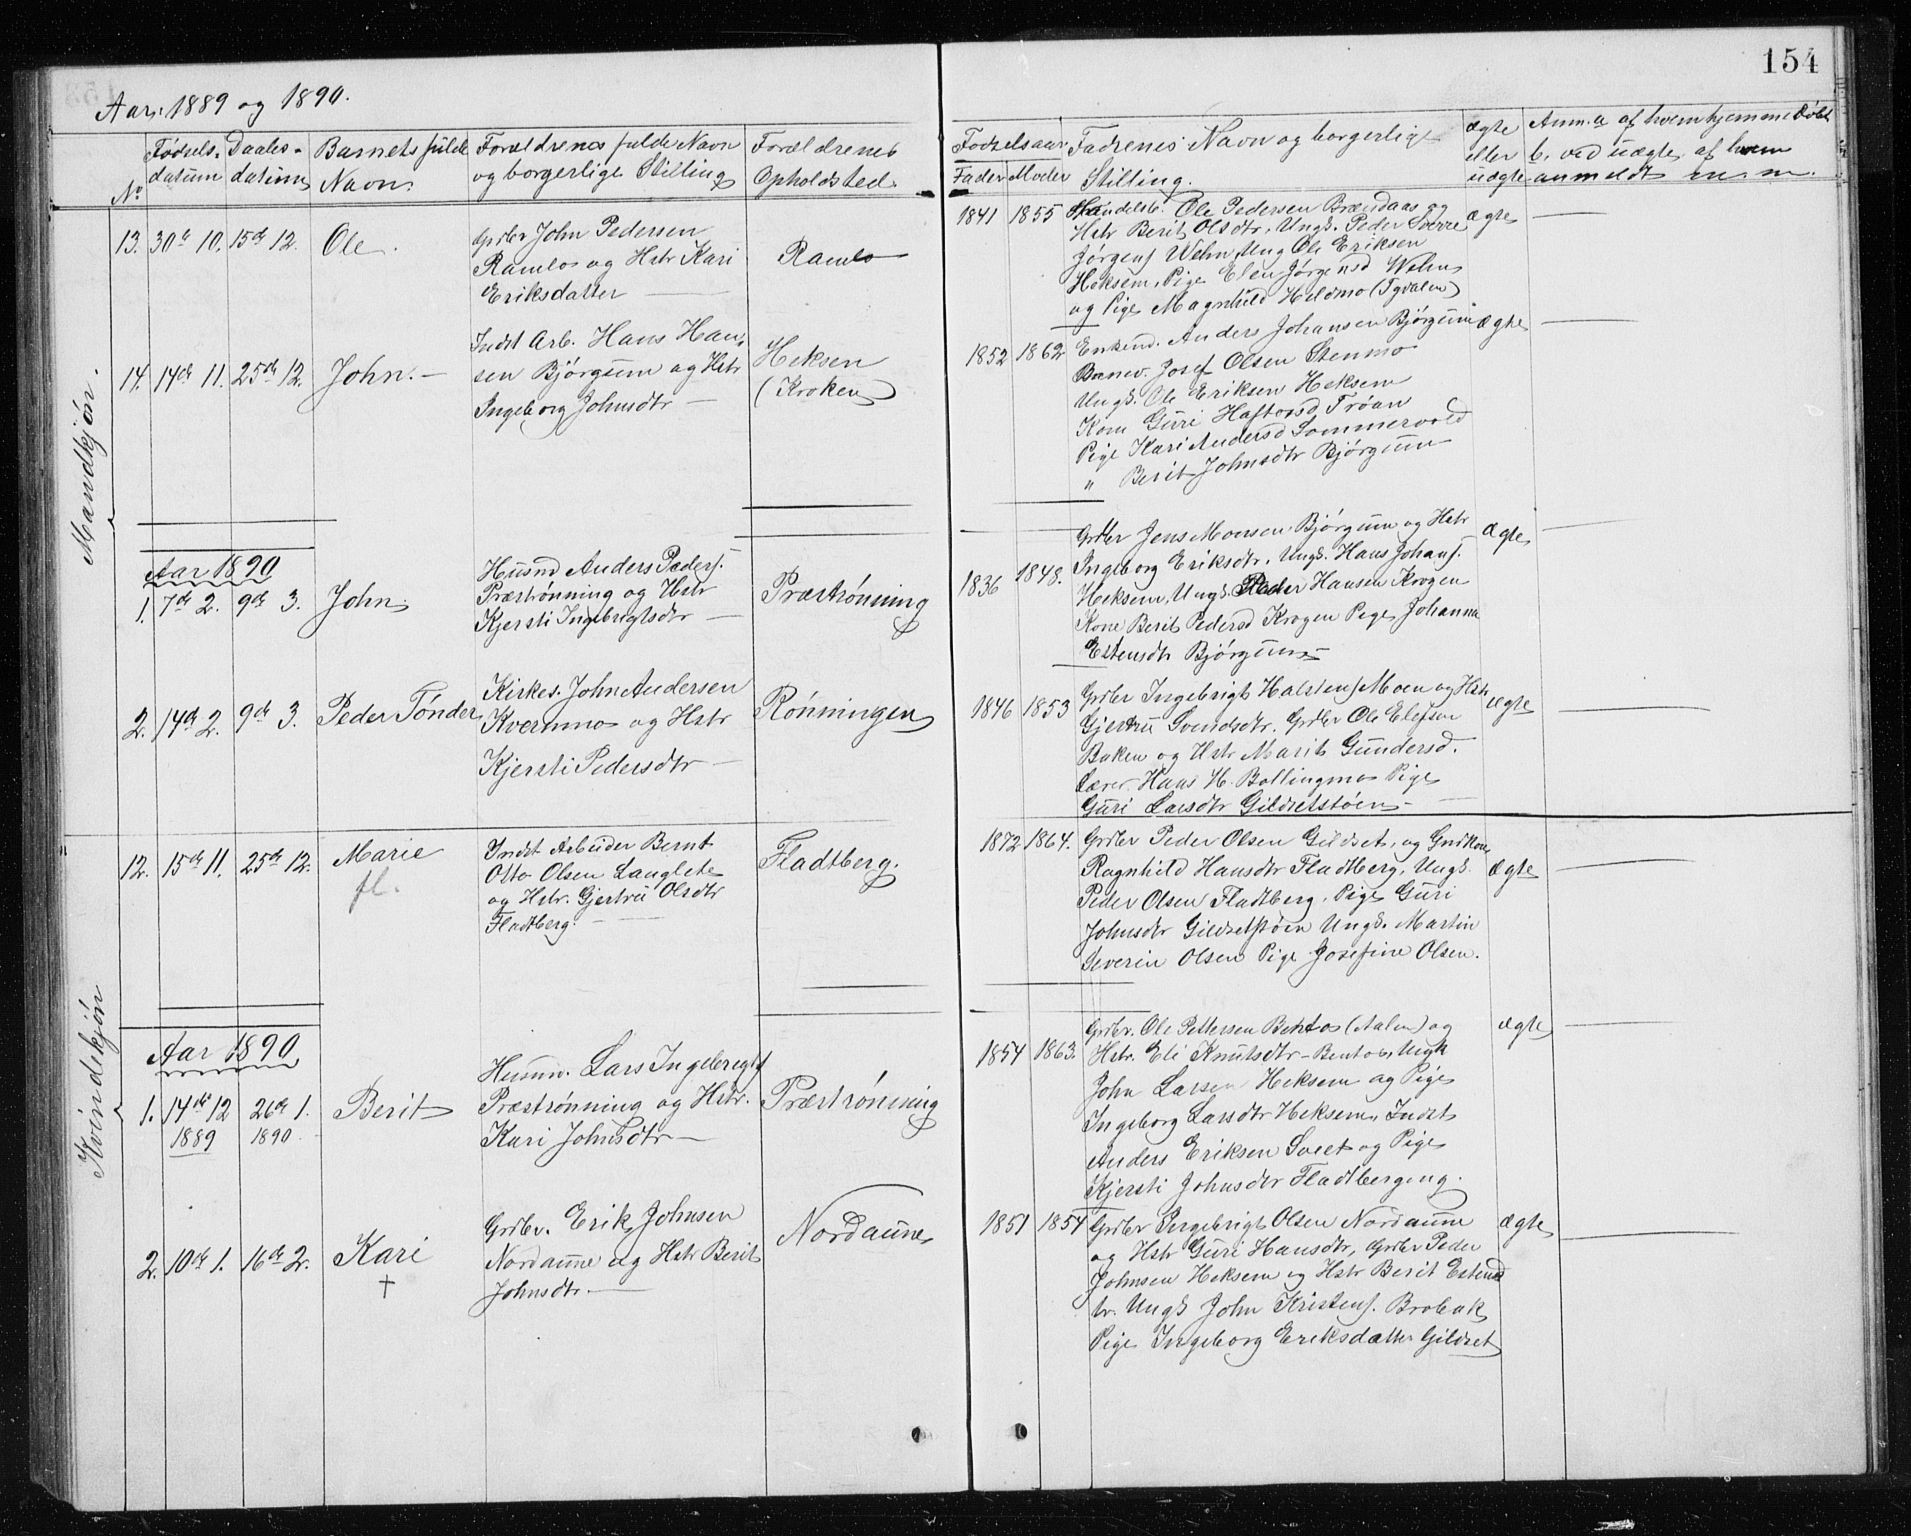 154
Aar. 1889 og 1890.
No
Fødsels-datum
Daabs-datum
Barnets fulde Navn
Forældrenes fulde Navn og borgerlige Stilling
Forældrenes Opholdsted
Fødselsaar
Fader Moder
Fadrenes Navn og borgerlige Stilling.
ægte eller uægte
Anm. a af hvem hjemmedøbt
b. ved uægte, af hvem anmeldt m. m.
Mandkjøn.
13. 30te 10. 15de 12. Ole.
Grdbr John Pedersen
Ramlo og Hstr Kari
Eriksdatter
Ramlo
1841 1855
Handelsb. Ole Pedersen Brændaas og
Hstr Berit Olsdtr, Ungk. Peder Sverre
Jørgens Wehn, Ung Ole Eriksen
Heksem, Pige Elen Jørgensd Wehn
og Pige Magnhild Hildmo (Tydalen)
ægte
14. 14de 11. 25de 12. John.
Indst Arb. Hans Han-
sen Bjørgum og Hstr
Ingeborg Johnsdtr
Heksem
(Kroken)
1852 1862
Enkemd. Anders Johansen Bjørgum
Josef Olsen Stenmo
Ungk. Ole Eriksen Heksem
Kone Guri Haftorsd Trøan
Pige Kari Andersd Sommervold
" Berit Johnsdtr Bjørgum
ægte
Aar 1890
1. 7de 2. 9de 3. John
Husmd Anders Peders.
Præstrønning og Hstr
Kjersti Ingebrigtsdtr
Præstrønning
1836 1848.
Grdbr Jens Monsen Bjørgum og Hstr
Ingeborg Eriksdtr, Ungk. Hans Johans.
Heksem, Ungk. Peder Hansen Krogen
Kone Berit Pedersd Krogen Pige Johanna
Estensdtr Bjørgum
ægte
2. 14de 2. 9de 3. Peder Tønder
Kirkes. John Andersen
Kvernmo og Hstr
Kjersti Pedersdtr
Rønningen
1846 1853
Grdbr Ingebrigt Halstens Moen og Hstr
Gjertru Svendsdtr. Grdbr Ole Elefsen
Baken og Hstr Marit Gundersd.
Lærer Hans H. Bollingmo Pige
Guri Larsdtr Gildsetstøen
ægte
Kvindekjøn
12. 15de 11. 25de 12. Marie
fl.
Indst Arbeider Bernt
Otto Olsen Langlete
og Hstr. Gjertru Olsdtr
Fladtberg.
Fladtberg.
1872 1864.
Grdbr Peder Olsen Gildset, og Grdkone
Ragnhild Hansdtr Fladtberg, Ungk.
Peder Olsen Fladtberg, Pige Guri
Johnsdtr Gildsetstøen Ungk. Martin
Severin Olsen Pige Josefine Olsen.
ægte
Aar 1890
1. 14de 12 1889 26de 1. 1890 Berit
Husmd. Lars Ingebregts
Præstrønning og Hstr.
Kari Johnsdtr
Præstrønning
1854 1863.
Grdbr. Ole Pettersen Bentos (Aalen) og
Hstr. Eli Knutsdtr Bentos, Ungk
John Larsen Heksem og Pige
Ingeborg Larsdtr Heksem, Indst
Anders Eriksen Sveet og Pige
Kjersti Johnsdtr Fladtbergeng.
ægte
2. 10de 1. 16de 2. Kari
†
Grdbr. Erik Johnsen
Nordaune og Hstr Berit
Johnsdtr.
Nordaune
1851 1854
Grdbr Ingebrigt Olsen Nordaune
og Hstr Guri Hansdtr, Grdbr Peder
Johnsen Heksem og Hstr Berit Estensd
tr. Ungk John Kristens. Brobak
Pige Ingeborg Eriksdatter Gildset
ægte